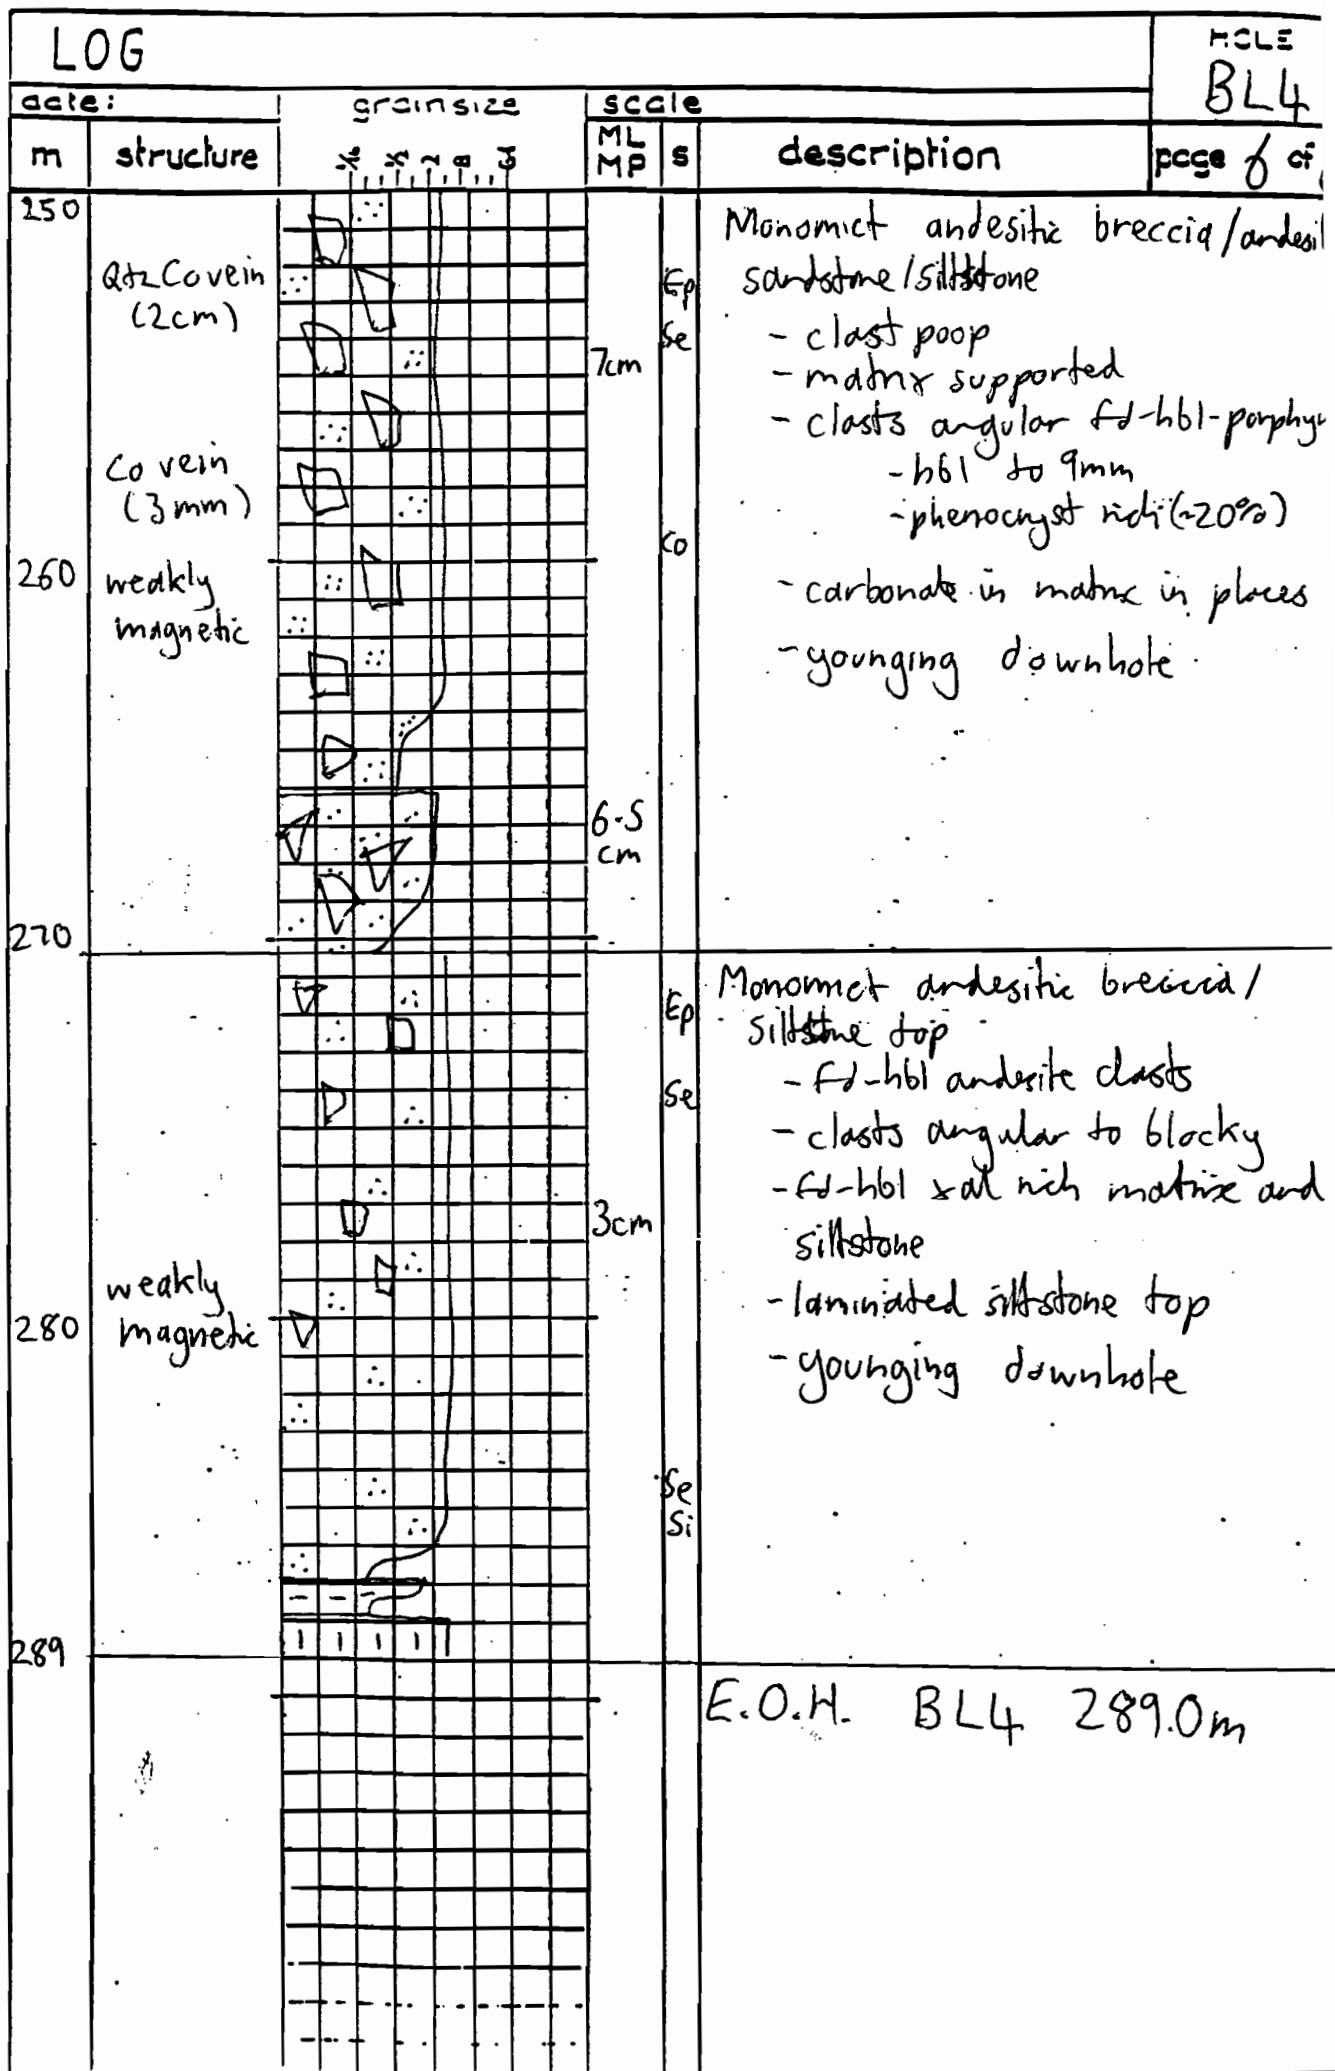 LOG
HOLE
BL4
date:
grainsize
scale
m
structure
1/16 1/2 2 8 64
ML
MP
s
description
page 6 of
250
Qtz Co vein
(2cm)
Co vein
(3mm)
260
weakly
magnetic
270
7cm
6.5
cm
Ep
Se
Co
Monomict andesitic breccia/andesi
sandstone/siltstone
- clast poop
- matrix supported
- clasts angular fd-hbl-porphy
- hbl to 9mm
- phenocryst rich (~20%)
- carbonate in matrix in places
- younging downhole
weakly
280
magnetic
289
3cm
Ep
Se
Se
Si
Monomict andesitic breccia/
siltstone top
- fd-hbl andesite clasts
- clasts angular to blocky
- fd-hbl xal rich matrix and
siltstone
- laminated siltstone top
- younging downhole
E.O.H. BL4 289.0m